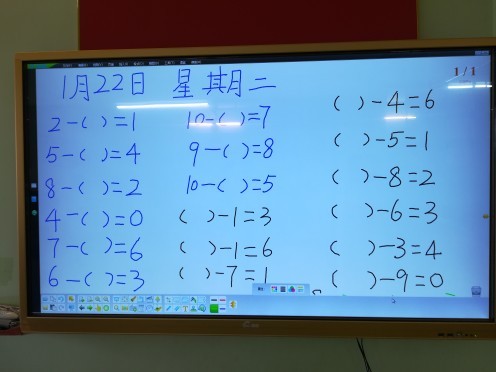 1月22日 星期二
2-( )=1
5-( )=4
8-( )=2
4-( )=0
7-( )=6
6-( )=3
10-( )=7
9-( )=8
10-( )=5
( )-1=3
( )-1=6
( )-7=1
1/1
( )-4=6
( )-5=1
( )-8=2
( )-6=3
( )-3=4
( )-9=0